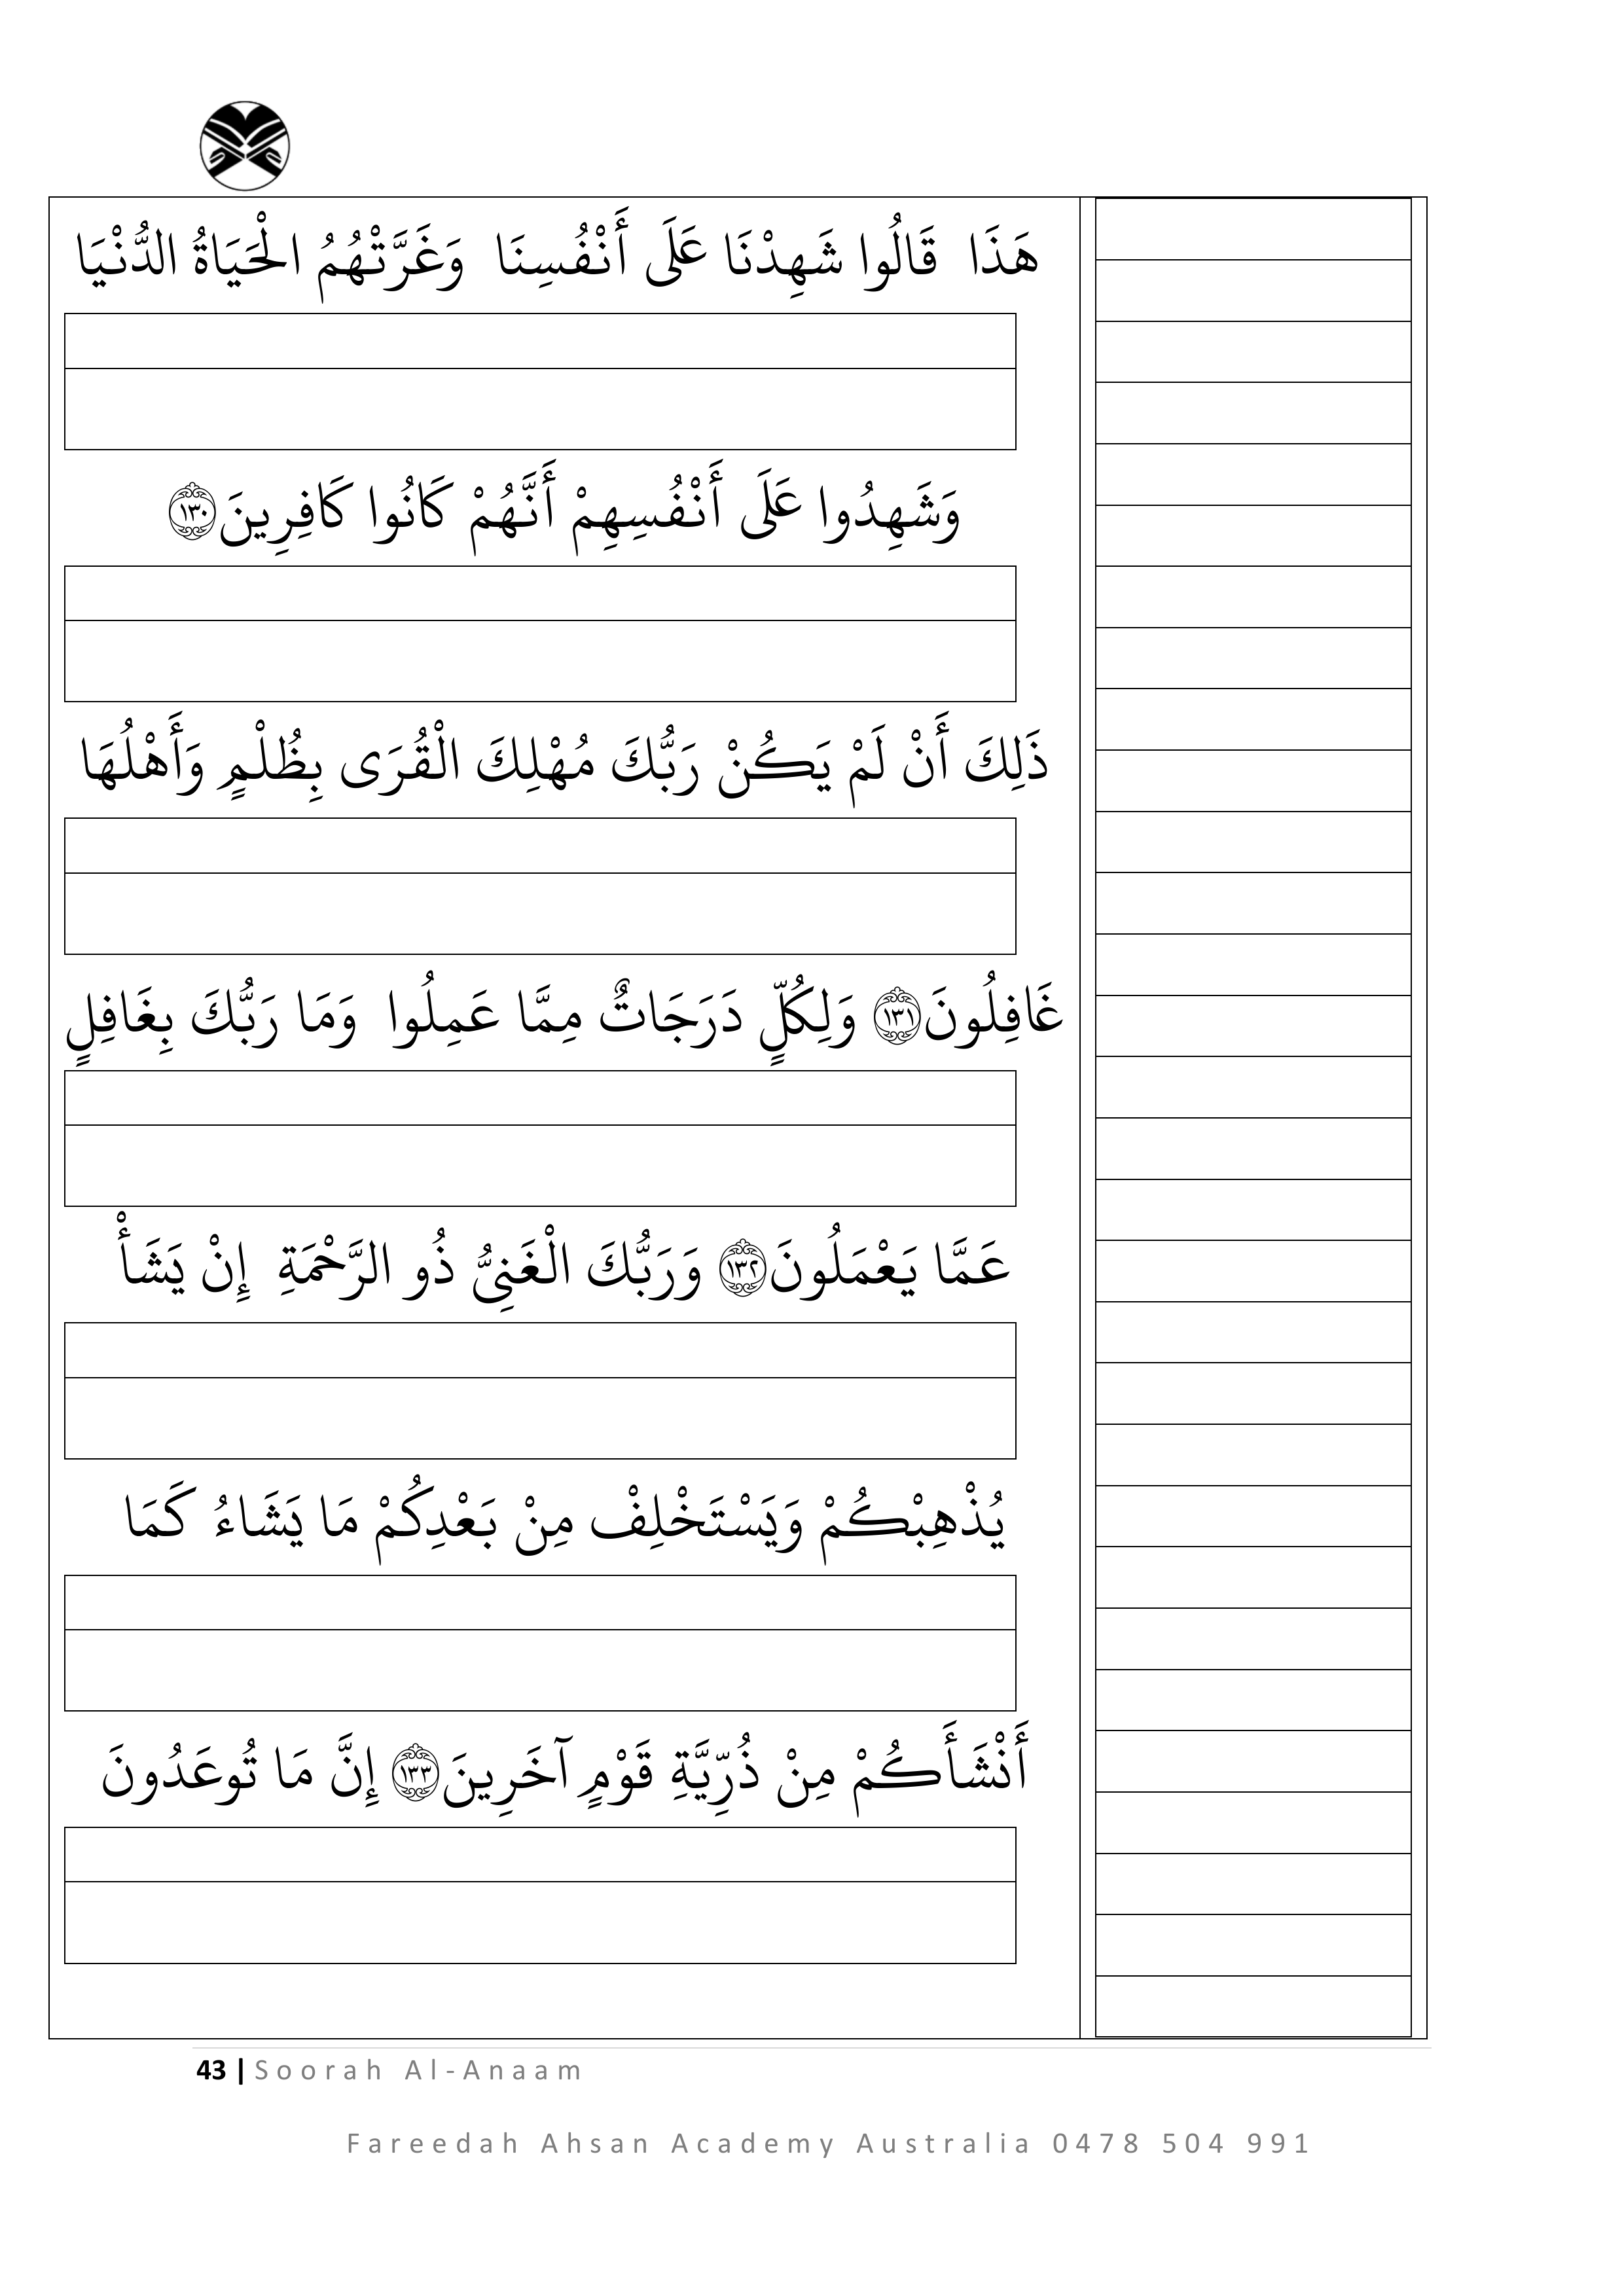 هَذَا قَالُوا شَهِدْنَا عَلَى أَنْفُسِنَا وَغَرَّتْهُمُ الْحَيَاةُ الدُّنْيَا
وَشَهِدُوا عَلَى أَنْفُسِهِمْ أَنَّهُمْ كَانُوا كَافِرِينَ ۝١٣٠
ذَلِكَ أَنْ لَمْ يَكُنْ رَبُّكَ مُهْلِكَ الْقُرَى بِظُلْمٍ وَأَهْلُهَا
غَافِلُونَ ۝١٣١ وَلِكُلٍّ دَرَجَاتٌ مِمَّا عَمِلُوا وَمَا رَبُّكَ بِغَافِلٍ
عَمَّا يَعْمَلُونَ ۝١٣٢ وَرَبُّكَ الْغَنِيُّ ذُو الرَّحْمَةِ إِنْ يَشَأْ
يُذْهِبْكُمْ وَيَسْتَخْلِفْ مِنْ بَعْدِكُمْ مَا يَشَاءُ كَمَا
أَنْشَأَكُمْ مِنْ ذُرِّيَّةِ قَوْمٍ آخَرِينَ ۝١٣٣ إِنَّ مَا تُوعَدُونَ
43 | Soorah Al-Anaam
Fareedah Ahsan Academy Australia 0478 504 991